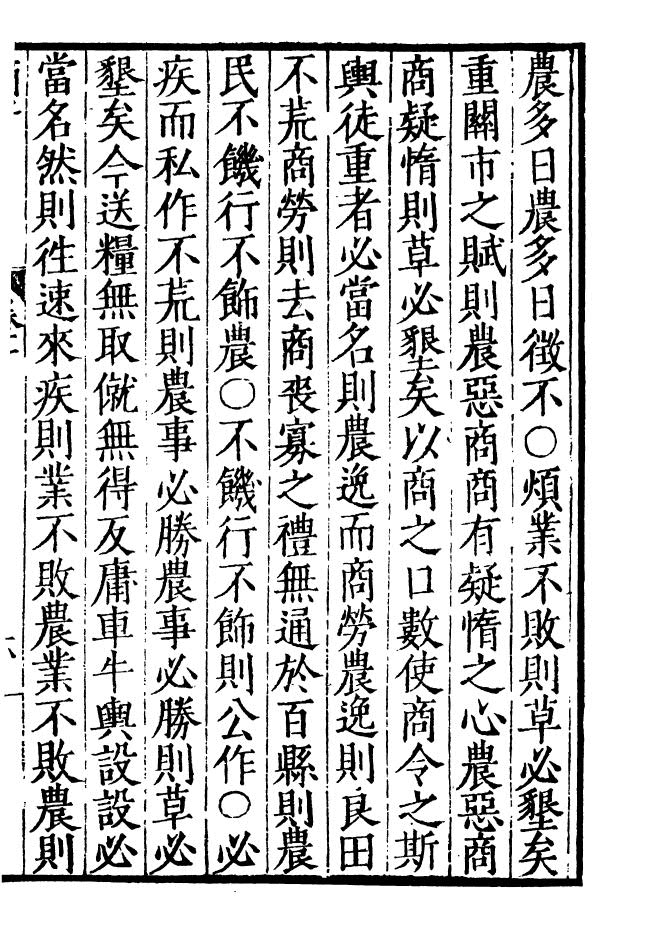 農多日農多日徵不〇煩業不敗則草必墾矣
重關市之賦則農惡商商有疑惰之心農惡商
商疑惰則草必墾矣以商之口數使商令之斯
輿徒重者必當名則農逸而商勞農逸則良田
不荒商勞則去商丧寡之禮無通於百縣則農
民不饑行不飾農〇不饑行不飾則公作〇必
疾而私作不荒則農事必勝農事必勝則草必
墾矣今送糧無取僦無得反庸車牛輿設設必
當名然則徃速來疾則業不敗農業不敗農則